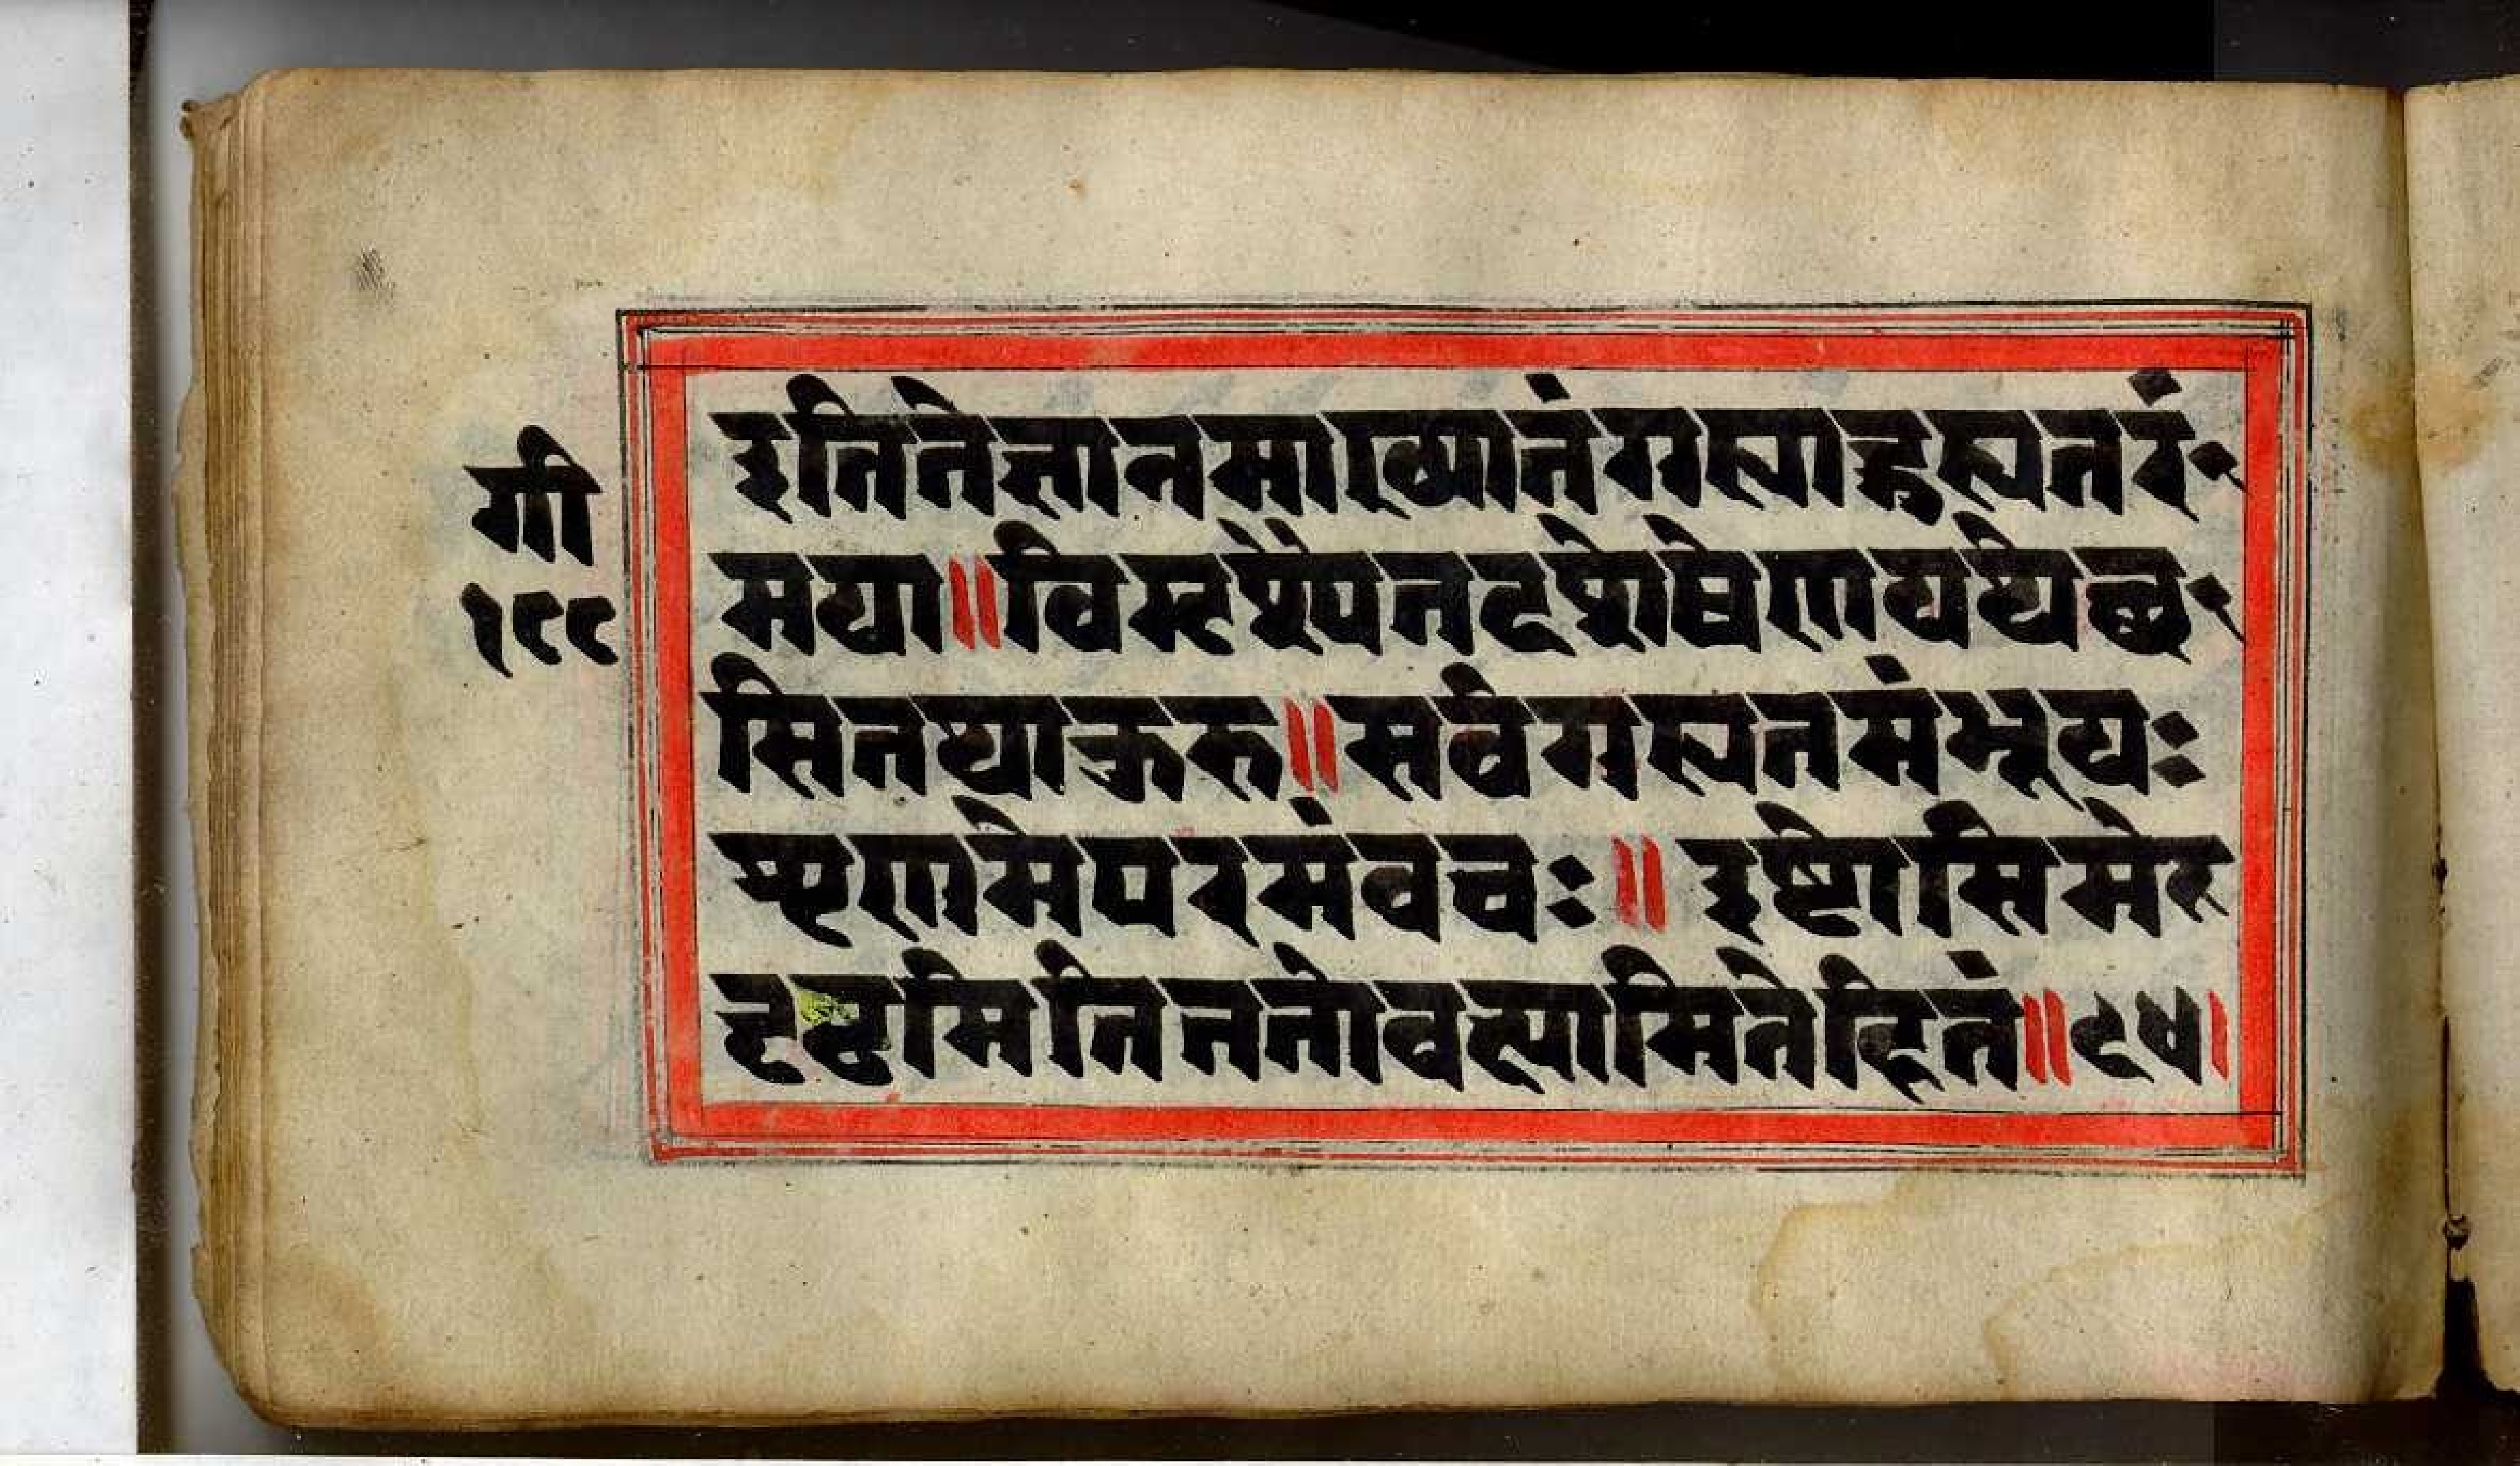 गी
१९८
इतितेज्ञानमाख्यातंगुह्याद्गुह्यतरं
मया॥विमृश्यैतदशेषेणयथेच्छ
सितथाकुरु॥सर्वगुह्यतमंभूयः
शृणुमेपरमंवचः॥इष्टोसिमेदृ
ढमितिततोवक्ष्यामितेहितं॥